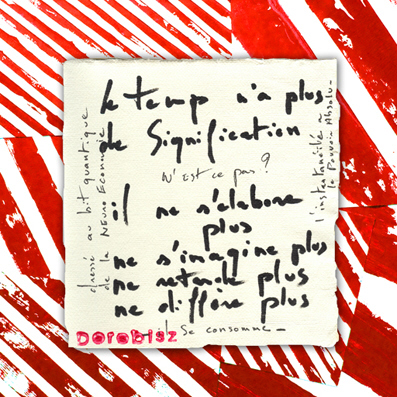 le temp n'a plus
de Signification
N'est ce pas ?
il ne s'élabore
plus
ne s'imagine plus
ne retarde plus
ne diffère plus
il Se consomme_
dressé au bit quantique
de la NEuro Economie
l'instantanéité a
le Pouvoir Absolu_
Dorobisz